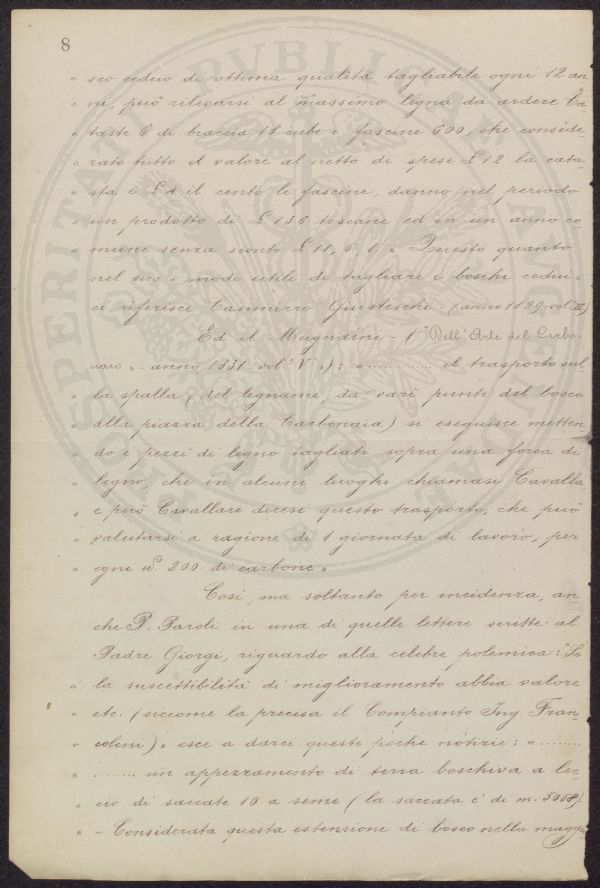 8
" sco ceduo di ottima qualità tagliabile ogni 12 an
" ni, può rilevarsi al massimo legna da ardere Ca
" taste 6 di braccia 18 cube e fascine 600, che conside-
" rato tutto il valore al netto di spese £ 12 la cata-
" sta e £ 4 il cento le fascine, danno nel periodo
" un prodotto di £ 136 toscane ed in un anno co-
" mune senza sconto £ 11, 6, 8, " Questo quanto
nel suo " modo utile di tagliare i boschi cedui "
ci riferisce Casimirro Giusteschi. (anno 1829 vol. III)
Ed il Magnaini - ( "Dell' Arte del Carbo-
naro " anno 1831 vol.° V° ) ; " ............. il trasporto sul-
" la spalla (del legname, da vari punti del bosco
" alla piazza della Carbonaia) si eseguisce metten
" do i pezzi di legno tagliati sopra una forca di
" legno, che in alcuni luoghi chiamasi Cavalla
" e però Cavallare dicesi questo trasporto, che può
" valutarsi a ragione di 1 giornata di lavoro, per
" ogni 200 di carbone "
Così, ma soltanto per incidenza, an
che P. Paroli in una di quelle lettere scritte al
Padre Giorgi, riguardo alla celebre polemica: "Se
" la suscettibilità di miglioramento abbia valore
" etc. (siccome la precisa il Compianto Ing Fran-
" colini) " esce a darci queste poche notizie: " ........
" ........ un appezzamento di terra boschiva a lec-
" cio di saccate 10 a seme (la saccata è di m. 5058).
" - Considerata questa estensione di bosco nella maggi
PROSPERITATI PVBLICAE AVGENDAE